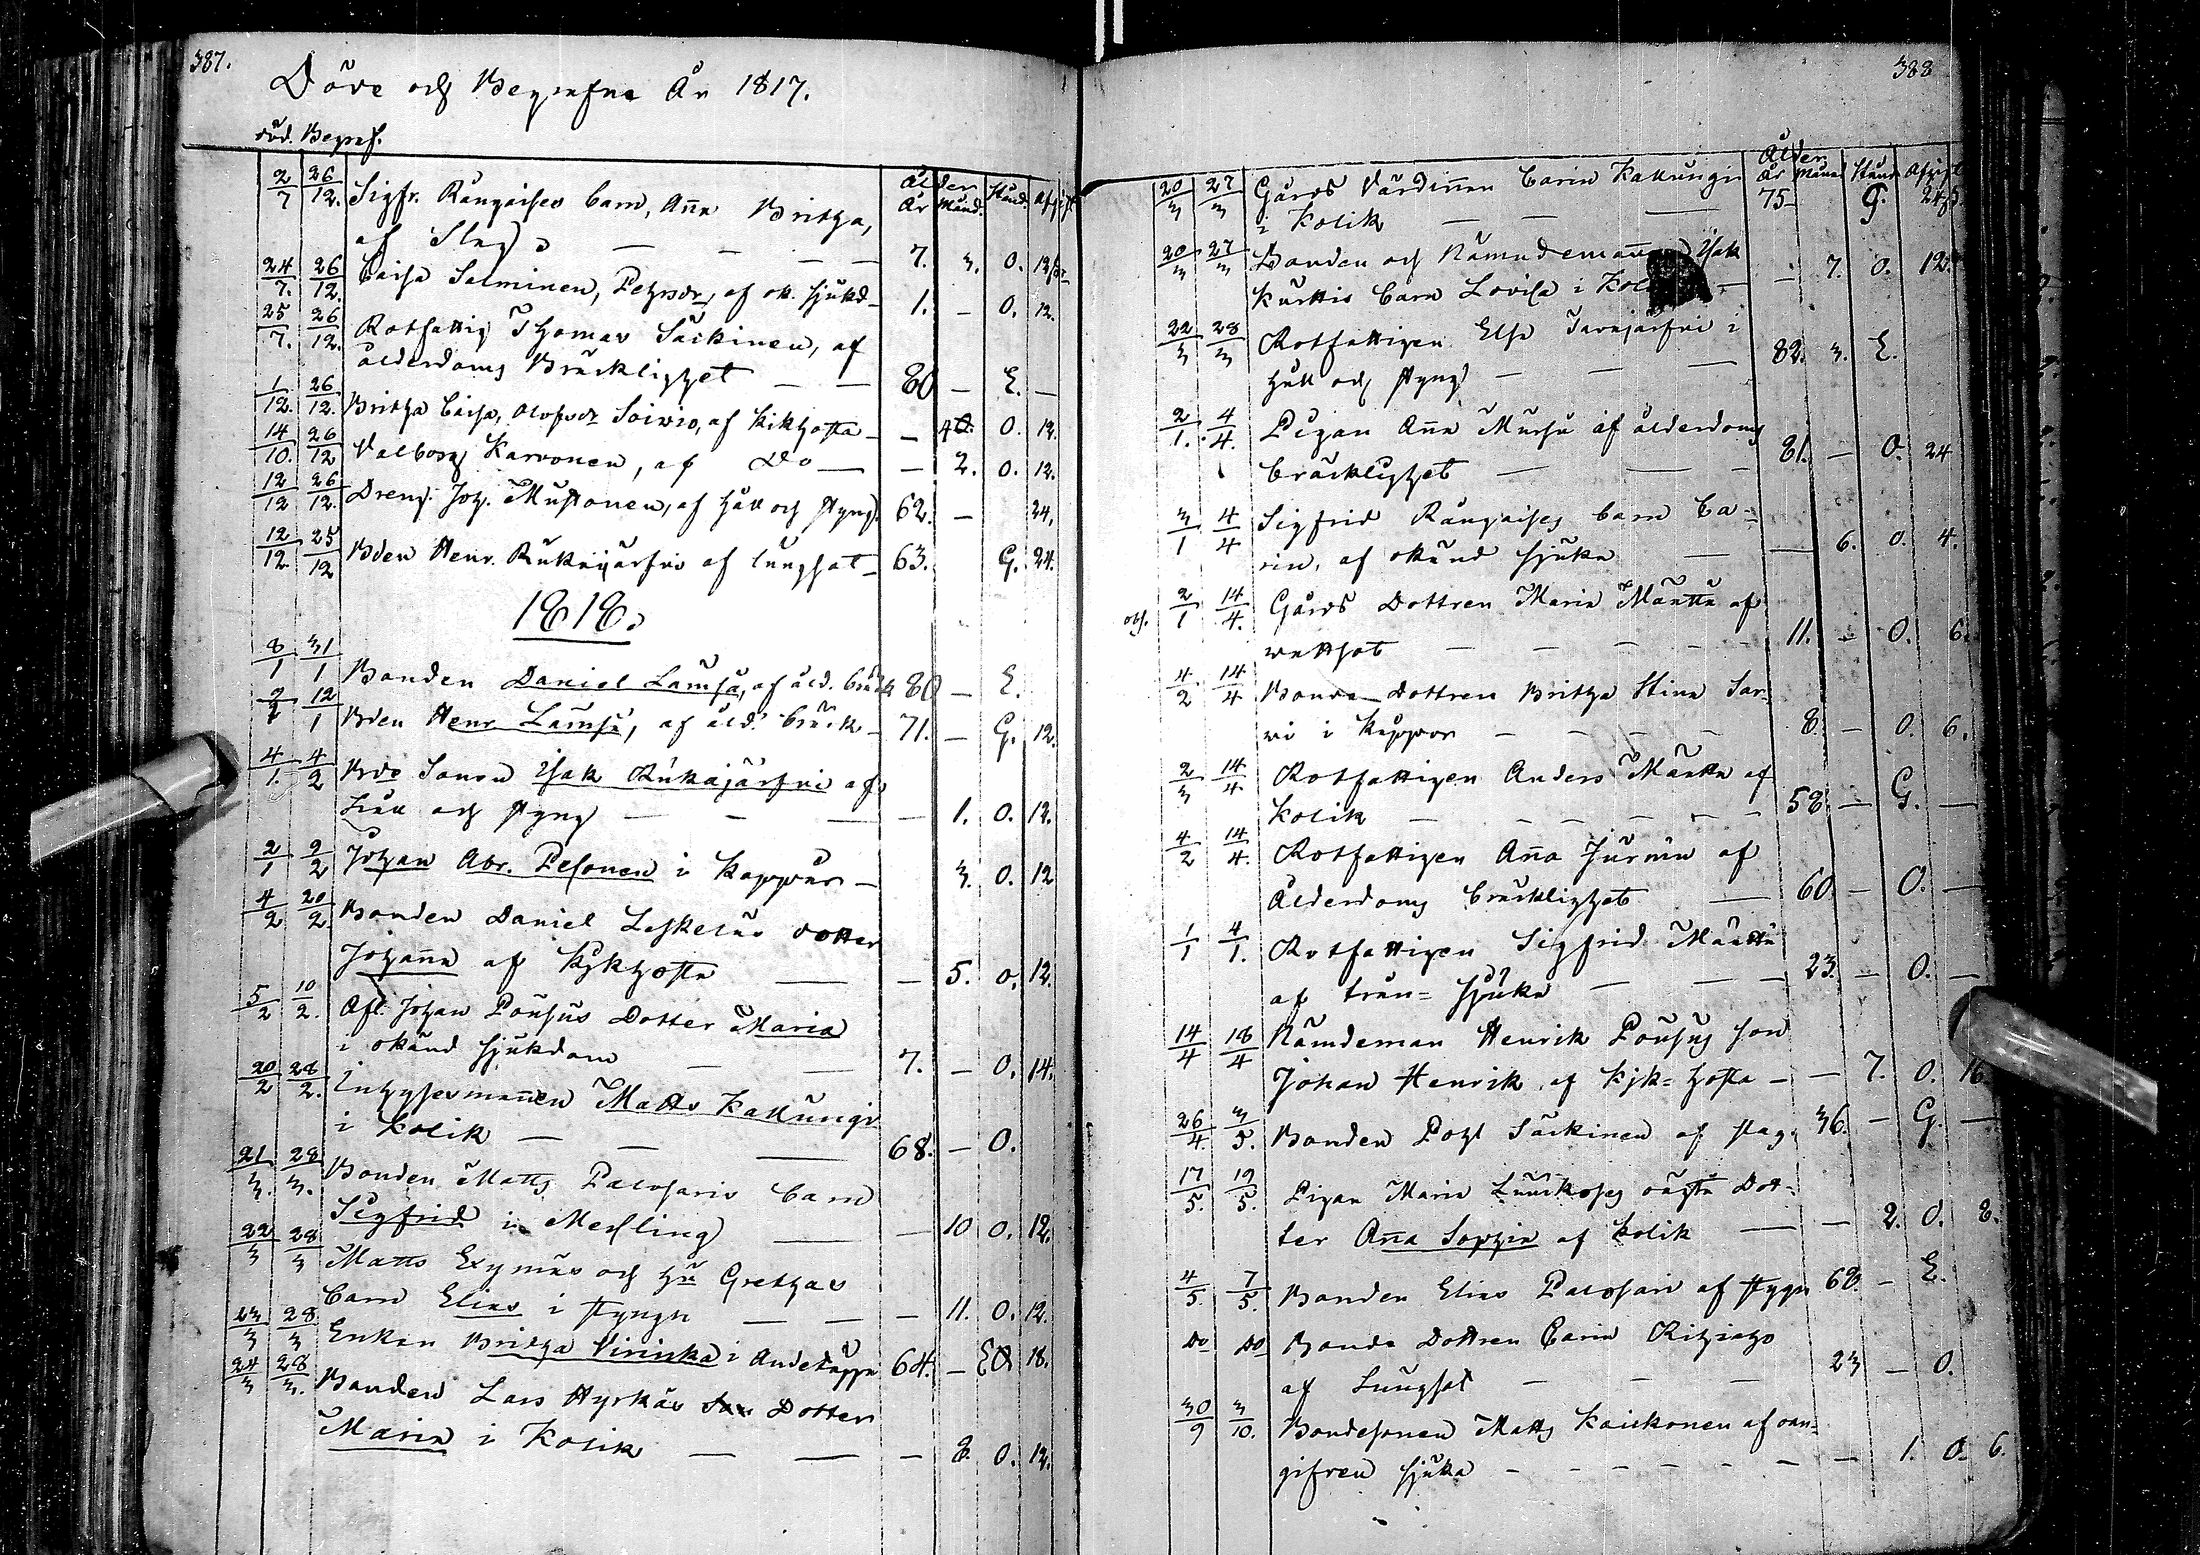 387.
Döde och Begrafne År 1817.
död. Begraf.
Ålder
År Månd. Stånd. Afgift
2/7 26/12. Sigfr. Rangaises barn, Anna Britha,
af Slag — — — 7. 3. O. 12
24/7. 26/12. Caisa Salminen, Pehrsdr, af ok. sjukd— 1. — O. 12.
25/7. 26/12. Rotfattig Thomas Säckinen, af
ålderdoms Bräcklighet — — 80 — E. —
1/12. 26/12. Britha Caisa, Olofsdr Soiwio, af Kikhosta — — O. 12.
14/10. 26/12 Valborg Karvonen, af Do — — 2. O. 12.
12/12 26/12. Dreng. Joh. Mustonen, af håll och styng. 62. — 24.
12/12. 25/12 Bden Henr. Rukajärfvi af lungsot— 63. G. 24.
1818.
8/1 31/1 Bonden Daniel Lämsä, af åld. bräck 80 — E.
12/1 Bden Henr Lämsä, af åld. bräck— 71. — G. 12.
4/1. 4/2 Bde Sonen Isak Rukajärfvi af
håll och styng — — — — 1. O. 12.
2/1 9/2 Johan Abr. Pesonen i Koppor — 3. O. 12
4/2 20/2. Bonden Daniel Leskeläs dotter
Johanna af Kjkhosta — — 5. O. 12.
5/2 10/2. Afl. Johan Pousus Dotter Maria
i okänd sjukdom — — 7. — O. 14.
20/2 28/2. Inhysesmannen Matts Kallungi
i Kolik — — — 68. — O.
21/3. 28/3. Bonden Matts Palosaris barn
Sigfrid i Messling — — 10 O. 12.
22/3 28/3 Matts och hu Grethas
barn Elias i styngn — — — 11. O. 12.
23/3 28/3 Enkan Britha i Andetäppa 64. — 18.
24/3 28/3. Bonden Lars Hyrkäs Dotter
Maria i Kolik — — — 8. O. 12.
388
Ålder
År Månd Stånd Afgift
20/3 27/3 Gårds Värdinnan Carin Kallungi
i Kolik — — — 75— G. 24
20/3 27/3 Bonden och Nämndemannen Isak
Kurttis barn Lovisa i — — 7. O. 12.
22/3 28/3 Rotfattigen Elsa i
håll och styng — — — 82. 3. E.
2/1. 4/4. Pigan Anna Mursu af ålderdoms
bräcklighet — — — 81. — O. 24
3/1 4/4 Sigfrid Rangaises barn Ca=
rin, af okänd sjuka — — 6. O. 4.
obs. 2/1 14/4. Gårds Dottren Maria Määttä af
wattsot — — — — 11. — O. 6.
4/2 14/4 Bonde Dottren Britha Stina Sar=
vi i Koppor — — — — 8. — O. 6.
2/3 14/4. Rotfattigen Anders Määttä af
Kolik — — — — — — 58 — G. —
4/2 14/4. Rotfattigen Anna af
Ålderdoms bräcklighet — 60 — O. —
1/1 4/1. Rotfattigen Sigfrid Määttä
af trån= sjuka — — — 23. — O. —
14/4 18/4 Nämdeman Henrik Pousus son
Johan Henrik af Kjk=hosta — — 7. O. 16.
26/4. 3/5. Bonden Pohl Säckinen af slag. 36. — G. —
17/5. 19/5. Pigan Maria oägta Dot=
ter Anna Sophia af Kolik — — 2. O. 8.
4/5. 7/5. Bonden Elias Palosari af styng 68. — E.
Do Do Bonde Dottren Carin
af Lungsot — — — 23 — O.
30/9 3/10. Bondesonen Matts Kaickonen af oan=
gifven sjuka — — — — — — 1. O. 6.